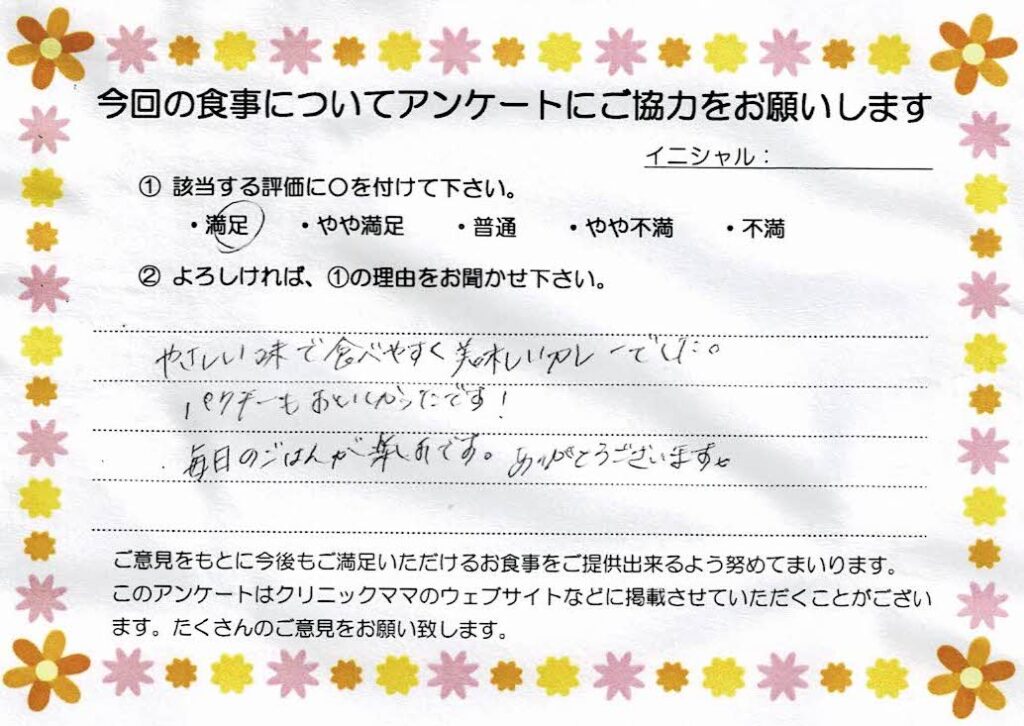 今回の食事についてアンケートにご協力をお願いします
イニシャル：
① 該当する評価に〇を付けて下さい。
・満足 ・やや満足 ・普通 ・やや不満 ・不満
② よろしければ、①の理由をお聞かせ下さい。
やさしい味で食べやすく美味しいカレーでした。
パクチーもおいしかったです！
毎日のごはんが楽しみです。ありがとうございます。
ご意見をもとに今後もご満足いただけるお食事をご提供出来るよう努めてまいります。
このアンケートはクリニックママのウェブサイトなどに掲載させていただくことがござい
ます。たくさんのご意見をお願い致します。